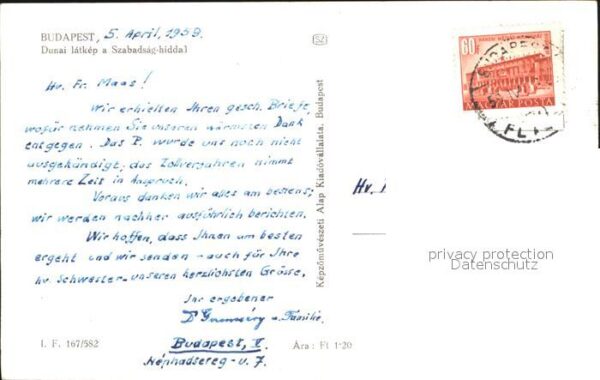 BUDAPEST, 5. April, 1959.
Dunai látkép a Szabadság-híddal
Hv. Fr. Maas!
Wir erhielten Ihren gesch. Briefe
wofür nehmen Sie unseren wärmsten Dank
entgegen. Das P. wurde uns noch nicht
ausgekündigt, das Zollverfahren nimmt
mehrere Zeit in Anspruch.
Voraus danken wir alles am bestens,
wir werden nachher ausführlich berichten.
Wir hoffen, dass Ihnen am besten
ergeht und wir senden - auch für Ihre
hv. Schwester - unseren herzlichsten Grüsse.
Ihr ergebener
Dr u. Familie.
Budapest, V.
Néphadsereg - u. 7.
I. F. 167/582
Ára: Ft 1·20
Képzőművészeti Alap Kiadóvállalata, Budapest
SZ
60f
MAGYAR POSTA
BUDAPEST
Hv.
privacy protection
Datenschutz